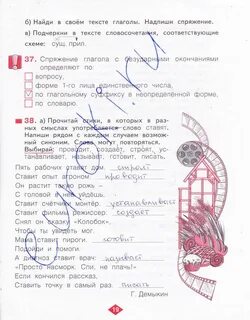 б) Найди в своём тексте глаголы. Надпиши спряжение.
в) Подчеркни в тексте словосочетания, соответствующие
схеме: сущ. прил.
37. Спряжение глагола с безударными окончаниями
определяют по
вопросу,
форме 1-го лица единственного числа,
по глагольному суффиксу в неопределённой форме,
по словарю.
38. а) Прочитай стихи, в которых в раз-
ных смыслах употребляется слово ставят.
Напиши рядом с каждым случаем возмож-
ный синоним. Слова могут повторяться.
Выбирай: проводит, создаёт, строят, уста-
навливает, вызывает, готовит, писать.
Пять рабочих ставят дом. строят
Ставит опыт геном проводит
Он растит такую рожь –
С головой в ней уйдёшь.
Ставит счётчик монтёр. устанавливает
Ставит фильму режиссёр. создаёт
Снял он сказку «Колобок».
Ставит мама пироги. готовит
Подойди и помоги.
А диагноз ставит врач: называет
«Просто насморк. Спи, не плачь!»
Если кончился рассказ,
Ставить точку в самый раз. писать
Г. Дёмыкин
19